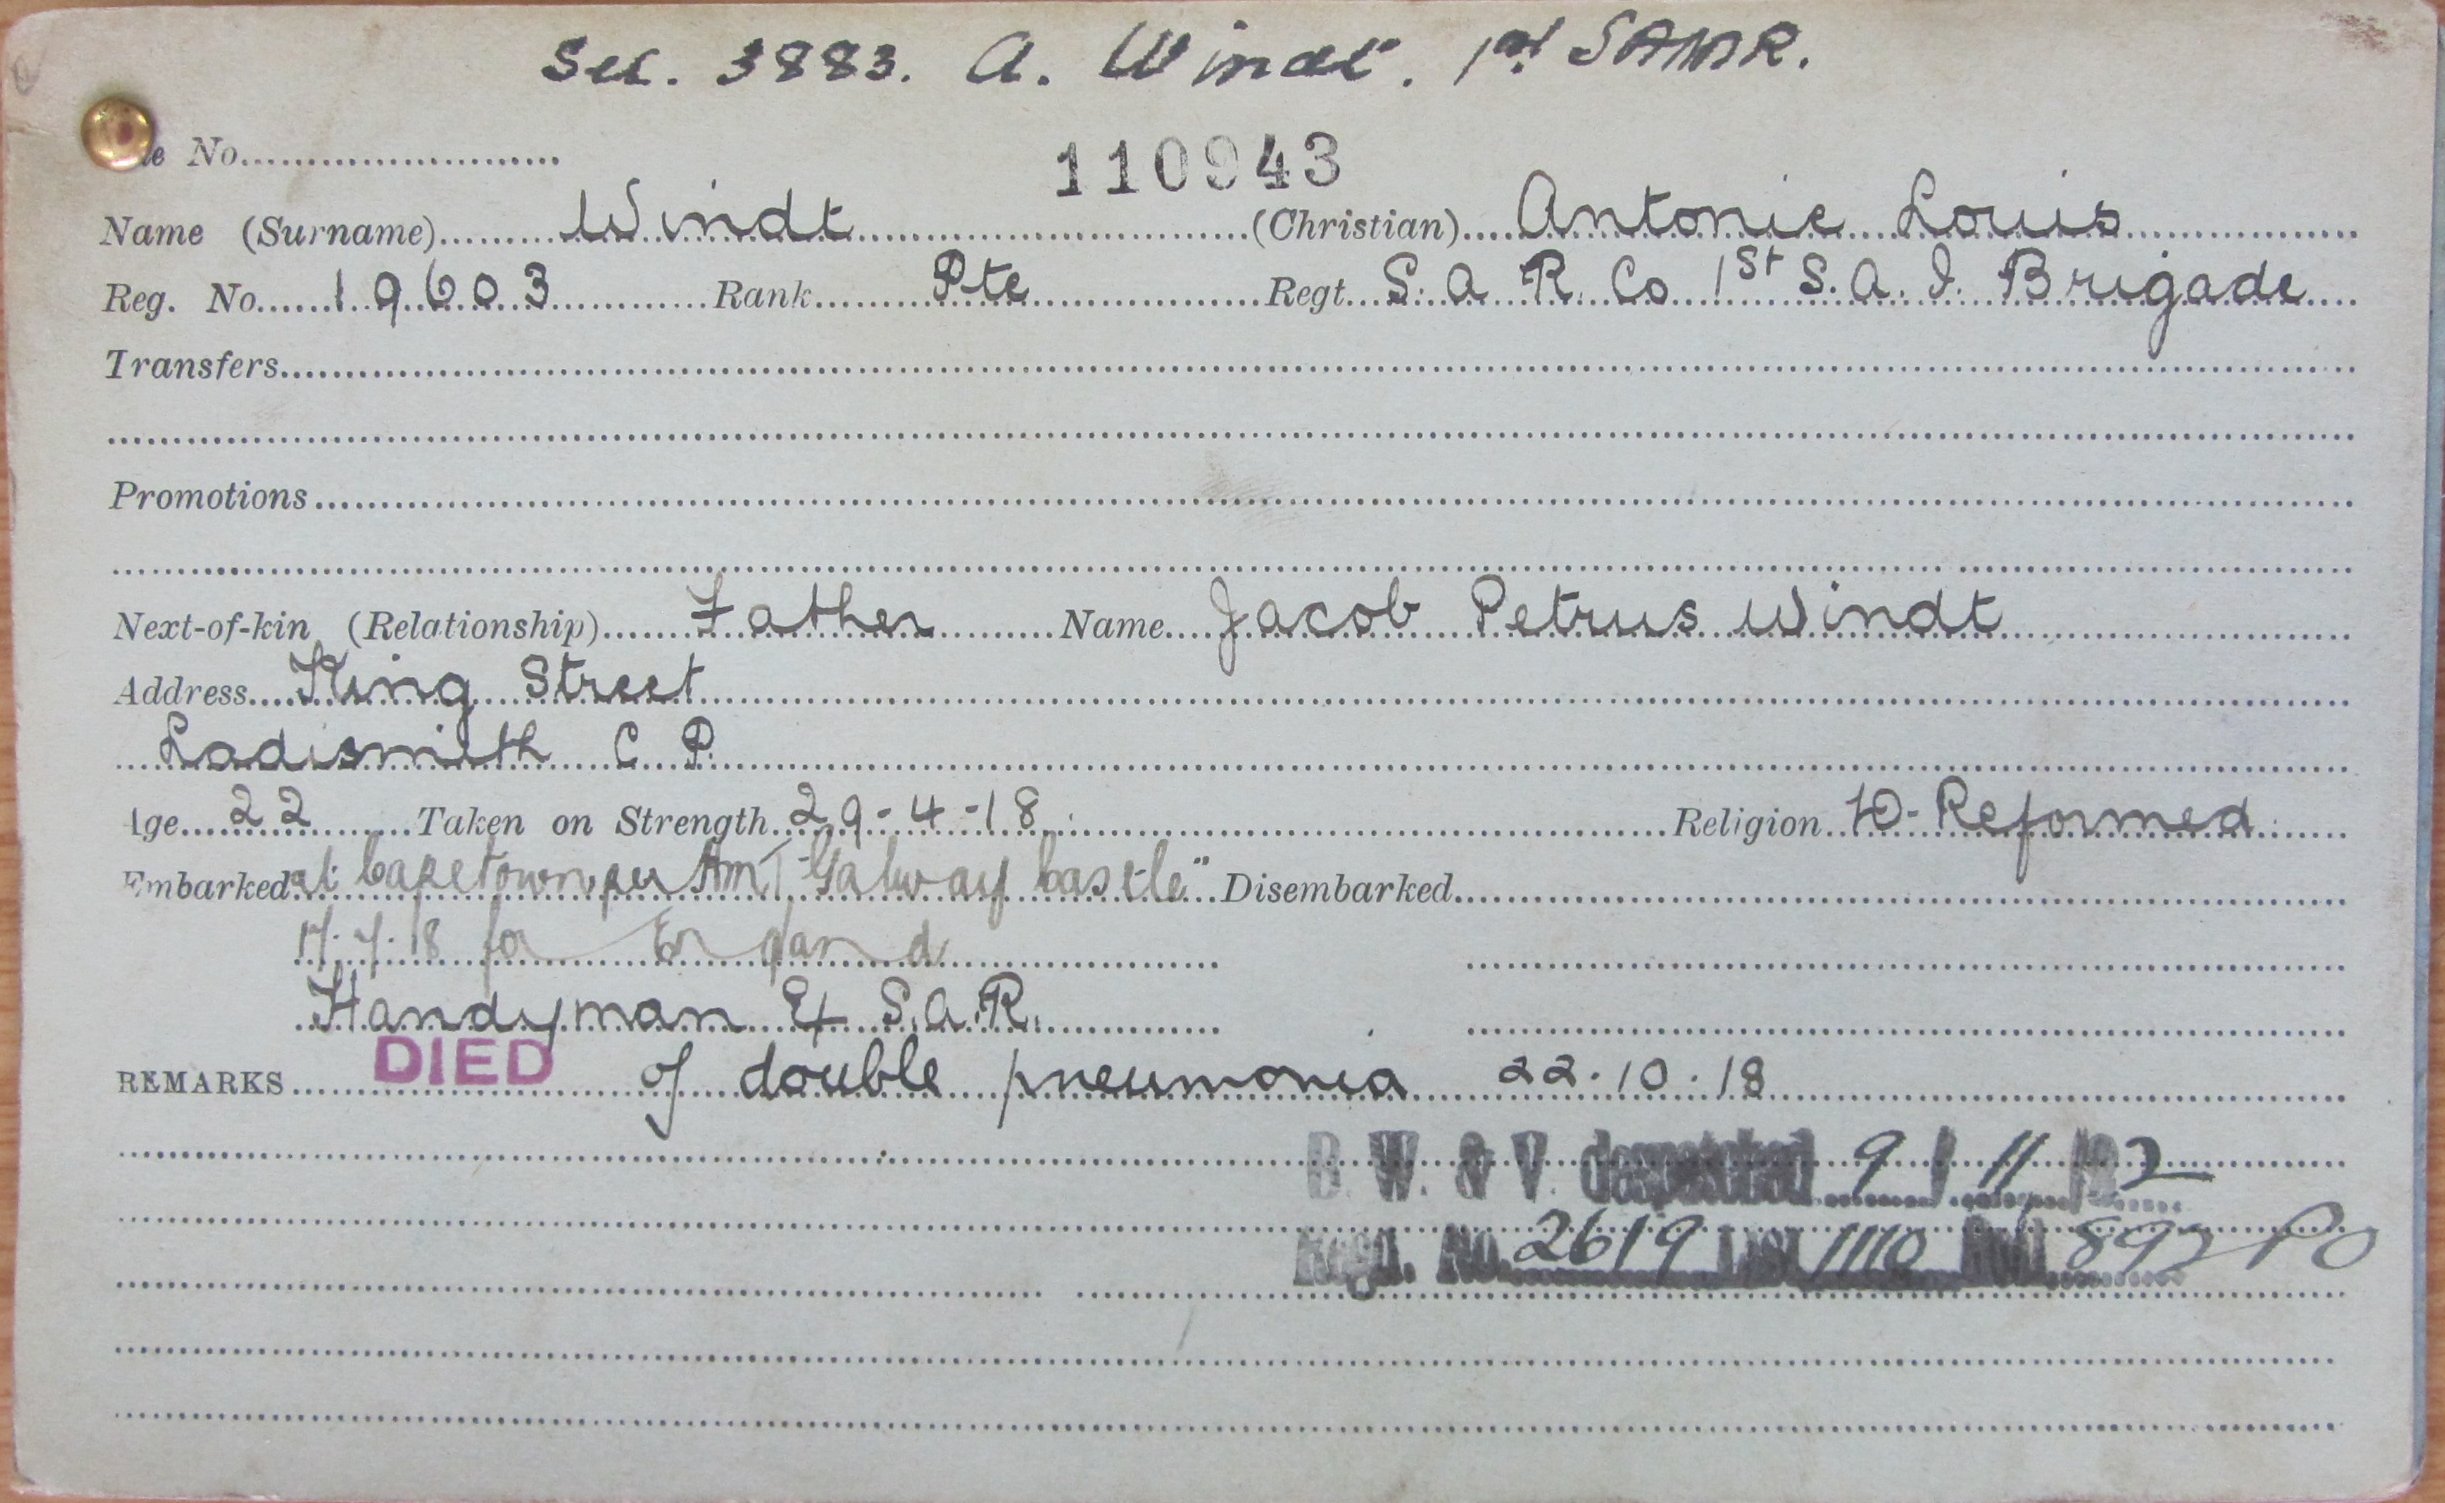 See. 3883. A. Windt. 1st SAMR.
110943
No.
Name (Surname) Windt (Christian) Antonie Louis
Reg. No. 19603 Rank Pte Regt. S. A. R. Co 1st S. A. I. Brigade
Transfers
Promotions
Next-of-kin (Relationship) Father Name Jacob Petrus Windt
Address King Street
Ladismith C. P.
Age 22 Taken on Strength 29-4-18 Religion D-Reformed
Embarked at Capetown per HMT "Galway Castle" Disembarked
for England
Handyman Ex S.A.R.
REMARKS DIED of double pneumonia 22.10.18
B. W. & V. despatched 9/11/
Regd. No. 2619 List 1110